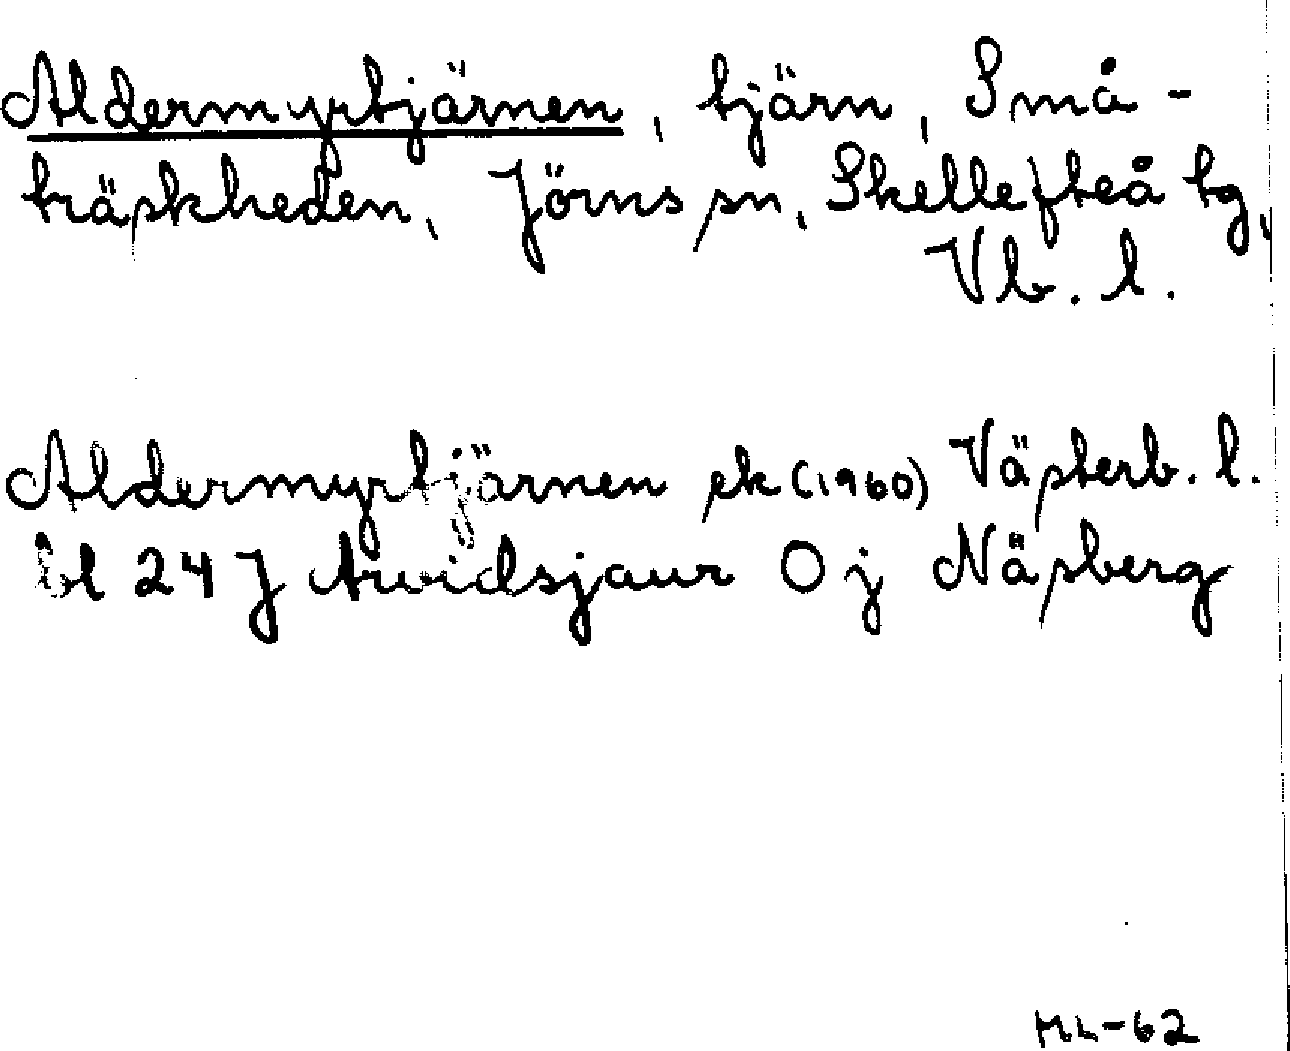 Aldermyrtjärnen, tjärn, Små-
träskheden, Jörns sn, Skellefteå tg,
Vb. l.
Aldermyrtjärnen ek (1960) Västerb. l.
bl 24 J Arvidsjaur O j Näsberg
ML-62